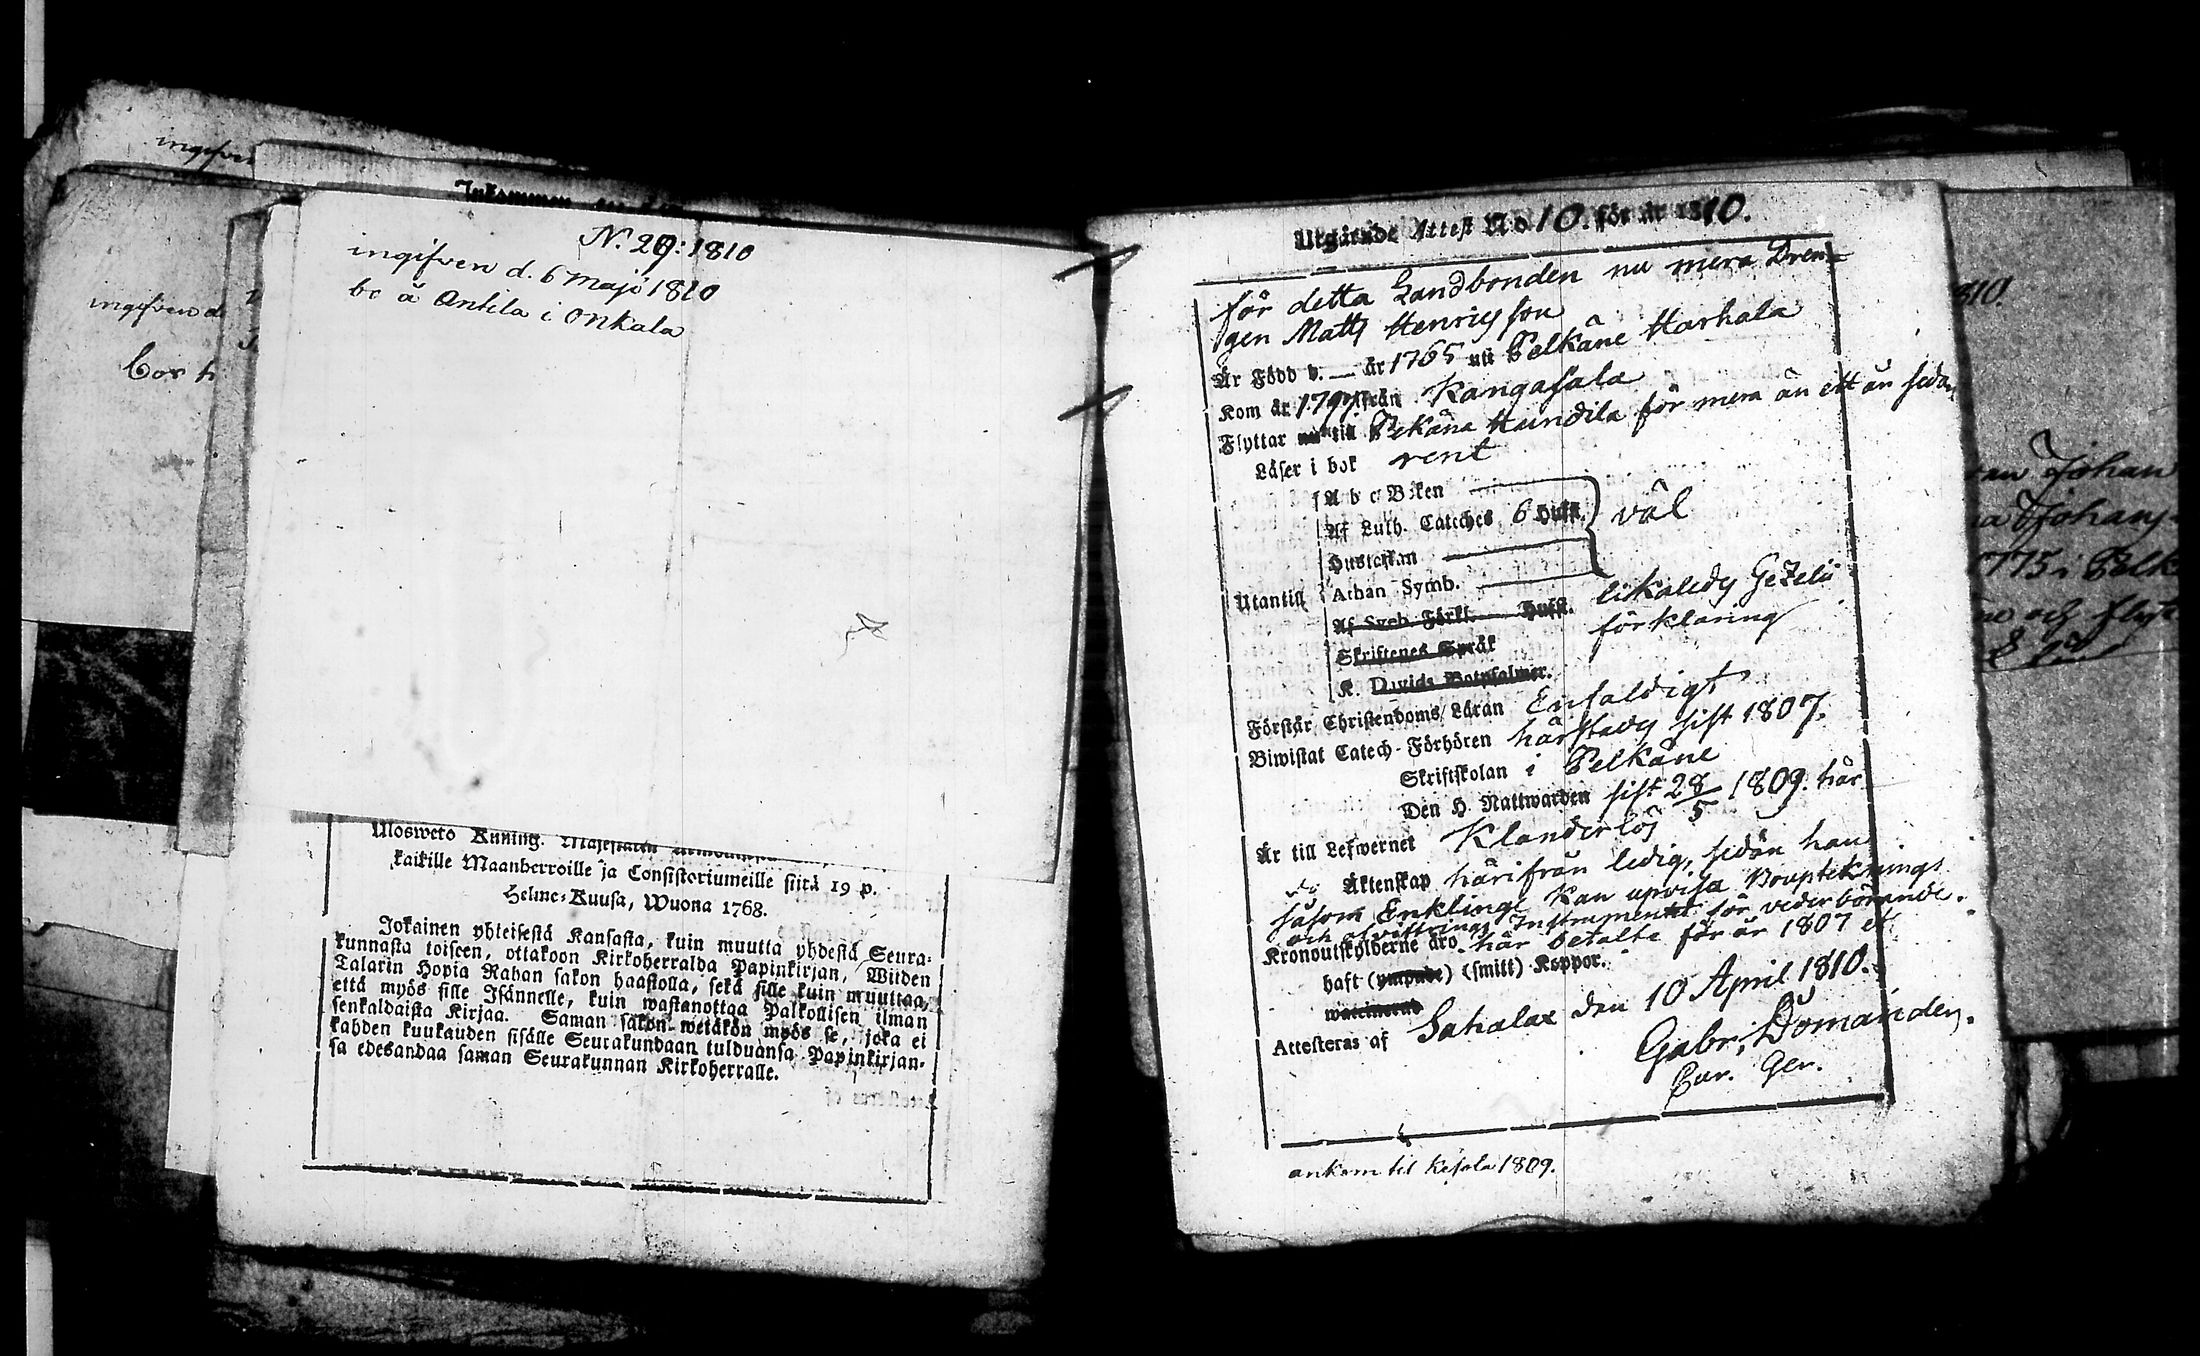 ingifven
Inkommen
ingifven d.
N. 29: 1810
ingifven d. 6 maji 1810
bo å Antila i Onkala
Ulosweto Kuning.
kaikille Maanherroille ja Consistoriumeille siitä 19 p.
Helme-Kuusa, Wuona 1768.
Jokainen yhteisestä Kansasta, kuin muutta yhdestä Seura-
kunnasta toiseen, ottakoon Kirkoherralda Papinkirjan, Wiiden
Talarin Hopia Rahan sakon haastolla, sekä sille kuin muuttaa,
että myös sille Isännelle, kuin wastanottaa Palkollisen ilman
senkaldaista Kirjaa. Saman sakon wetäkön myös se, joka ei
kahden kuukauden sisälle Seurakundaan tulduansa Papinkirjan-
sa edesandaa saman Seurakunnan Kirkoherralle.
Utgående Attest No 10. för år 1810.
för detta Landbonden nu mera Dren-
gen Matts Henricsson
Är Född d. — år 1765 uti Pelkäne Harhala
Kom år 179 från Kangasala
Flyttar nu till Pekäne Haindila för mera än ett år sedan
Läser i bok rent
Utantill
A b c Boken
Af Luth. Cateches 6 Hufst. väl
Hustaflan
Athan Symb.
Af Sveb. Förkl. Hufst. likaledes Gezelii
förklaring
Skriftenes Språk
K. Davids Botpsalmer.
Förstår Christendoms Läran Enfaldigt
Biwistat Catech-Förhören härstädes sist 1807.
Skriftskolan i Pelkäne
Den H. Nattwarden sist 28/5 1809. här
Är till Lefwernet Klanderlös
Äktenskap härifrån ledig, sedan han
såsom Enkling kan upvisa Bouptecknings
och afvittrings Instrument för vederbörande.
Kronoutskylderne äro här betalte för år 1807 et
haft (ympade) (smitt) Koppor.
waccinerad
Attesteras af Sahalax den 10 April 1810.
Gabr. Domander.
Cur. Ger.
ankom til Kisala 1809.
1810.
Johan
1775 i Pelk
och flyt